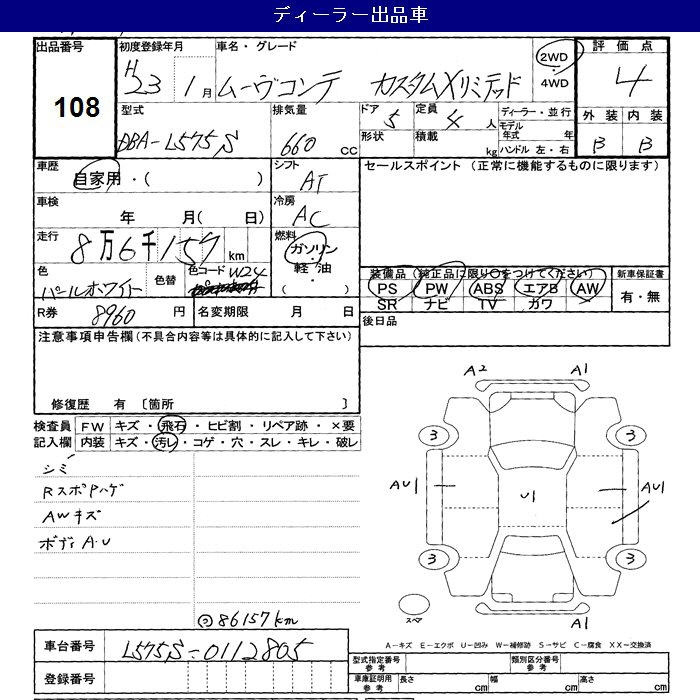 ディーラー出品車
出品番号 初度登録年月 車名・グレード 評価点
108
H23 1月 ムーヴコンテ カスタムXリミテッド 2WD・4WD 4
型式 排気量 ドア 5 定員 4人 ディーラー・並行 外装 内装
DBA-L575S 660 cc 形状 積載 kg モデル年式 年 B B
ハンドル 左・右
車歴 シフト セールスポイント (正常に機能するものに限ります)
自家用・( ) AT
車検 冷房
年 月( 日) AC
走行 燃料
8万6千157 km ガソリン・軽油・( )
色 色替 色コード W24 装備品 (純正品に限り○をつけてください) 新車保証書
パールホワイト PS PW ABS エアB AW 有・無
SR ナビ TV カワ
R券 8960 円 名変期限 月 日 後日品
注意事項申告欄 (不具合内容等は具体的に記入して下さい)
修復歴 有 〔箇所 〕
検査員 FW キズ・飛石・ヒビ割・リペア跡・×要
記入欄 内装 キズ・汚レ・コゲ・穴・スレ・キレ・破レ
シミ
RスポPハゲ
AWキズ
ボディA.U
A2 A1
3 3
AU1 U1 AU1
3 3
スペア A1
86157km
A-キズ E-エクボ U-凹み W-補修跡 S-サビ C-腐食 XX-交換済
車台番号 L575S-0112805
登録番号
型式指定番号 参考 類別区分番号 参考
車庫証明用 参考 長さ cm 幅 cm 高さ cm